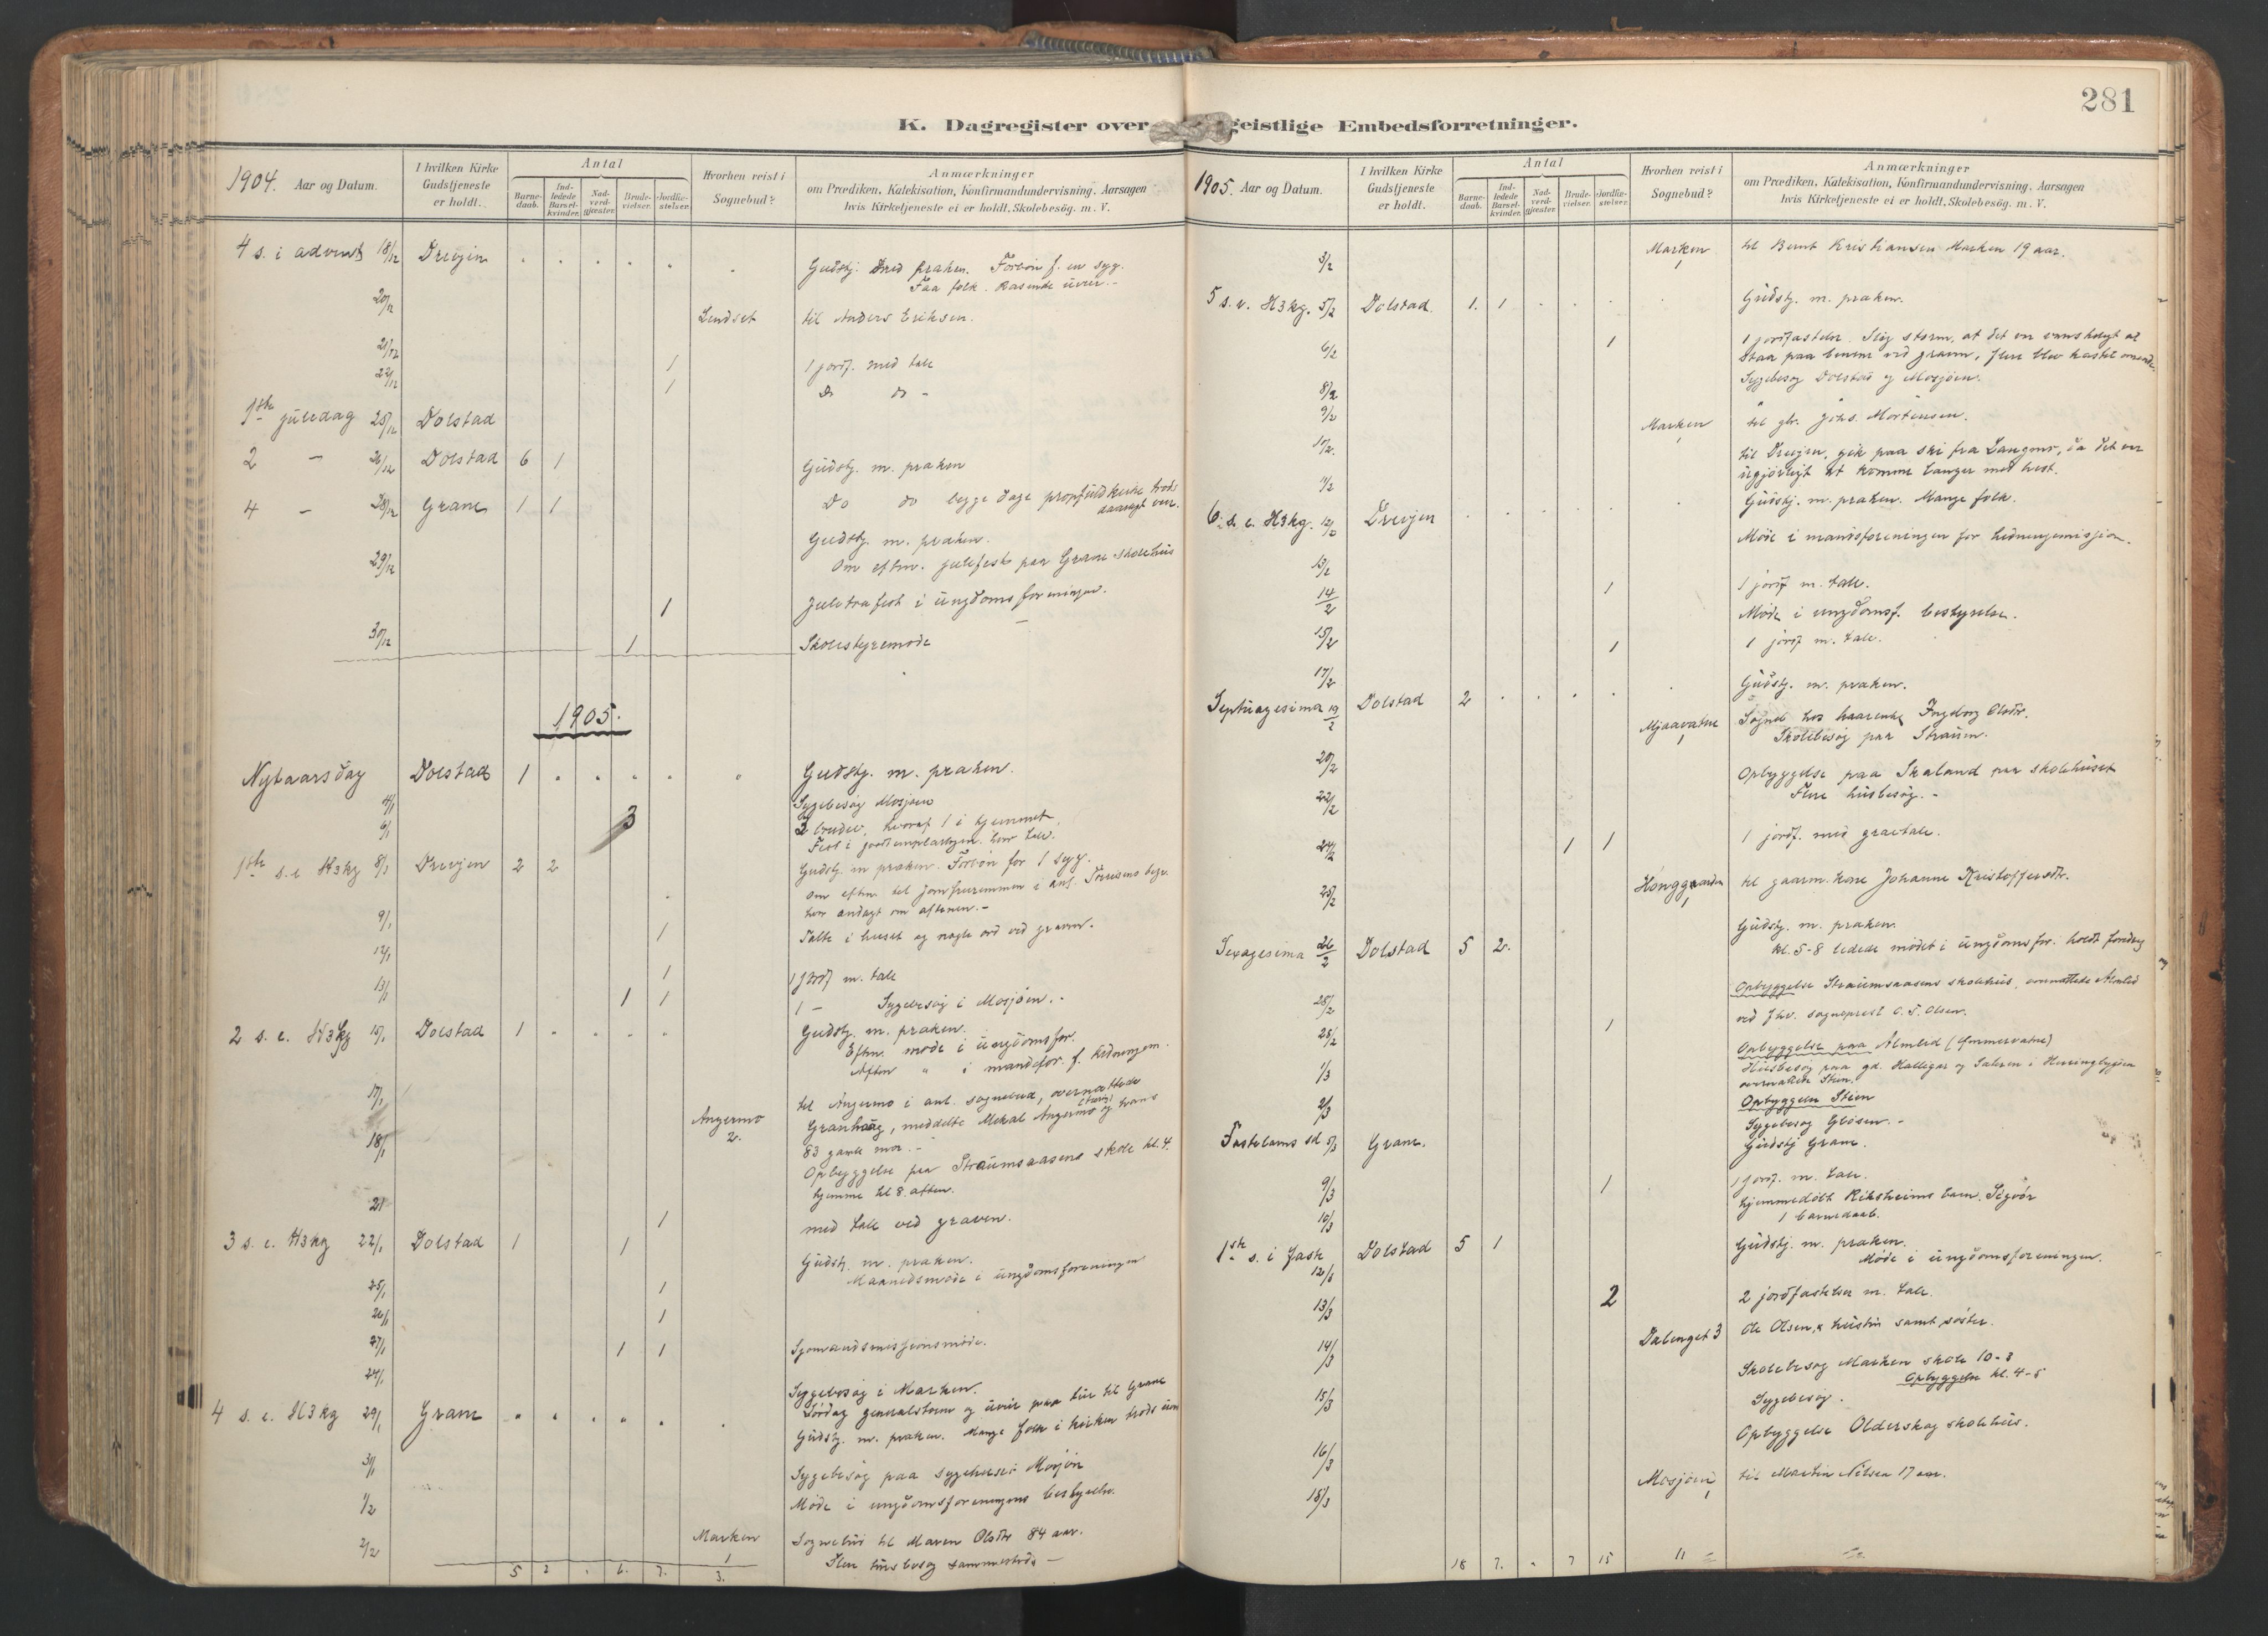 281
K. Dagregister over geistlige Embedsforretninger.
1904. Aar og Datum.
I hvilken Kirke Gudstjeneste er holdt.
Antal
Barnedaab.
Indledede Barselkvinder.
Nadverdgjester.
Brudevielser.
Jordfæstelser.
Hvorhen reist i Sognebud?
Anmærkninger
om Prædiken, Katekisation, Konfirmandundervisning, Aarsagen
hvis Kirketjeneste ei er holdt, Skolebesög. m. V.
4 s. i advent 18/12 Drevjen Gudstj. med præken. Forbön f. en syg.
Faa folk. Rasende uveir. -
20/12 til Anders Eriksen.
21/12 1 1 jordf. med tale
22/12 1 do do -
1ste juledag 25/12 Dolstad
2 - 26/12 Dolstad 6 1 Gudstj. m. præken
4 - 28/12 Grane 1 1 Do do begge dage propfuld kirke trods
Gudstj. m. præken.
29/12 Om eftm. julefest paa Grane skolehus
1 Juletræfest i ungdomsforeningen.
30/12 1 Skolestyremøde
1905.
Nytaarsdag Dolstad 1 Gudstj. m. præken.
4/1 Sygebesøg Mosjøen
6/1 3 3 brudev. hvoraf 1 i hjemmet
1ste s. e. H3kg 8/1 Drevjen 2 2 Gudstj. m præken. Forbön for 1 syg.
holdt andagt om aftenen. -
9/1 1 Talte i huset og nogle ord ved graven.
12/1 1 1 jordf m. tale
13/1 1 1 1 - Sygebesøg i Mosjöen. -
2 s. e. H3kg 15/1 Dolstad 1 Gudstj. m. præken.
Eftm. möde i ungdomsfor.
Aften " i mandsfor. f. hedningem.
17/1 til Angermo i anl. sognebud, overnattede
Angermo 2. Granhaug, meddelte Mekal Angermo og hans
18/1 83 gamle mor. -
Opbyggelse paa Straumsaasens skole kl. 4.
hjemme kl 8. aften.
21 1 med tale ved graven.
3 s. e. H3kg 22/1 Dolstad 1 1 Gudstj. m. præken.
Maanedsmøde i ungdomsforeningen
25/1 1
26/1 1
27/1 1 1 Sjomandsmisjonsmöde.
Sygebesøg i Marken.
4 s. e. H3kg 29/1 Grane Gudstj. m. præken. Mange folk i kirken trods
31/1 Sygebesøg paa sygehuset Mosjøn
1/2 Möde i ungdomsforeningens bestyrelse.
2/2 Marken 1 Sognebud til Maren Olsdtr 84 aar.
Flere husbesög sammesteds -
5 2 . 6. 7. 3.
1905. Aar og Datum.
I hvilken Kirke Gudstjeneste er holdt.
Antal
Barnedaab.
Indledede Barselkvinder.
Nadverdgjester.
Brudevielser.
Jordfæstelser.
Hvorhen reist i Sognebud?
Anmærkninger
om Prædiken, Katekisation, Konfirmandundervisning, Aarsagen
hvis Kirketjeneste ei er holdt, Skolebesög. m. V.
3/2 Marken 1 til Bernt Kristiansen Marken 19 aar.
5 s. e. H3kg. 5/2 Dolstad. 1. 1 Gudstj. m. præken.
6/2 1 1 jordfæstelse. Slig storm, at det var vanskeligt at
staa paa benene ved graven, flere blev kastet
8/2 Sygebesøg Dolstad og Mosjøen.
9/2 Marken 1 til gbr. Johs. Mortensen.
10/2. til Drevjen, gik paa ski fra, da det var
ugjørligt at komme længer med hest.
11/2
6. s. e. H3kg. 12/2 Drevjen Gudstj. m. præken. Mange folk.
Möde i mandsforeningen for hedningemisjon.
13/2 1 1 jordf m. tale.
14/2 Möde i ungdomsf. bestyrelse.
15/2 1 1 jordf m. tale.
17/2
Septuagesima 19/2 Dolstad 2 Gudstj. m. præken.
Mjaavatne 1 Sognebud hos Ingeborg Olsdtr.
Skolebesøg paa Straum.
20/2 Opbyggelse paa Skaland paa skolehuset
22/2 Flere husbesög. -
24/2 1 1 1 jordf. med gravtale.
25/2 1 til gaarm. kone Johanne Kristoffersdtr.
Sexagesima 26/2 Dolstad 5 2. Gudstj. m. præken.
kl. 5-8 ledede mödet i ungdomsfor. holdt foredrag
Opbyggelse Straumsaasens skolehus, overnattede Almlid
28/2 ved fhv. sogneprest O. T. Olsen.
28/2 1 Opbyggelse paa Almlid
1/3
2/3 Opbyggelse Stien
Sygebesøg
Fastelavns sd 5/3 Grane. Gudstj Grane.
9/3 1 1 jordf. m. tale.
10/3 hjemmedöbt barn. Sigvör
1 barnedaab.
1ste s. i faste 12/3 Dolstad 5 1 Gudstj. m. præken.
Möde i ungdomsforeningen.
13/3 2 2 jordfæstelser m. tale.
14/3 3 Ole Olsen, hustru samt søster.
Skolebesøg Marken skole 10-3
Opbyggelse kl. 4-5
15/3 Sygebesøg.
16/3 Opbyggelse Olderskog skolehus.
18/3 Mosjøen 1 til Martin Nilsen 17 aar.
18 7. - 7 15 11